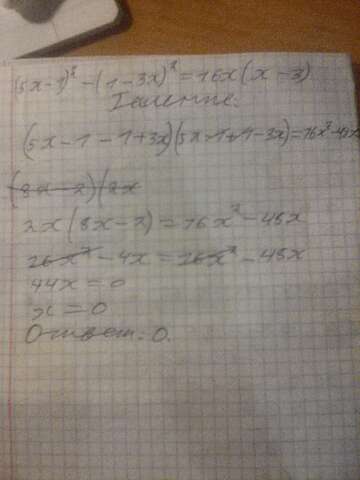 (5x-1)² - (1-3x)² = 16x(x-3)
Решение:
(5x-1-1+3x)(5x-1+1-3x)=16x²-48x
(8x-2)(2x
2x(8x-2)=16x²-48x
16x²-4x=16x²-48x
44x=0
x=0
Ответ: 0.